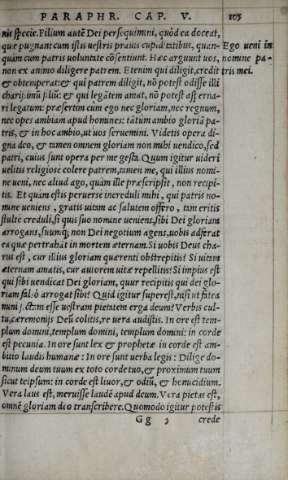 PARAPHR. CAP. V. 105
nis specie. Filium autē Dei persequimini, quòd ea doceat,
quæ pugnant cum istis uestris prauis cupiditatibus, quan-
quàm cum patris uoluntate cōsentiunt. Hæc arguunt uos,
non ex animo diligere patrem. Etenim qui diligit, credit
& obtemperat: & qui patrem diligit, nō potest odisse illi
charū: imò filiū: & qui legātem amat, nō potest asp erna-
ri legatum: præsertim cùm ego nec gloriam, nec regnum,
nec opes ambiam apud homines: tātùm ambio gloriā pa-
tris, & in hoc ambio, ut uos seruemini. Videtis opera di-
gna deo, & tamen omnem gloriam non mihi uendico, sed
patri, cuius sunt opera per me gesta. Quum igitur uideri
uelitis religiose colere patrem, tamen me, qui illius nomi-
ne ueni, nec aliud ago, quàm ille præscripsit, non recipi-
tis. Et quum estis peruerse increduli mihi, qui patris no-
mine ueniens, gratis uitam ac salutem offero, tum eritis
stulte creduli, si quis suo nomine ueniens, sibi Dei gloriam
arrogans, suumq́; non Dei negotium agens, uobis adferat
ea quæ pertrahāt in mortem æternam. Si uobis Deus cha-
rus est, cur illius gloriam quærenti obstrepitis? Si uitam
æternam amatis, cur autorem uitæ repellitis? Si impius est
qui sibi uendicat Dei gloriam, quur recipitis qui dei glo-
riam falsò arrogat sibi? Quid igitur superest, nisi ut fatea
mini fictam esse uestram pietatem erga deum? Verbis cul-
tu, cæremonijs Deū colitis, re uera audistis. In ore est tem-
plum domini, templum domini, templum domini: in corde
est pecunia. In ore sunt lex & prophetæ in corde est am-
bitio laudis humanæ: In ore sunt uerba legis: Dilige do-
minum deum tuum ex toto corde tuo, & proximum tuum
sicut teipsum: in corde est liuor, & odiū, & homicidium.
Vera laus est, meruisse laudē apud deum. Vera pietas est,
omnē gloriam deo transcribere. Quomodo igitur potestis
Gg 2 crede
Ego ueni in
nomine pa-
tris mei.